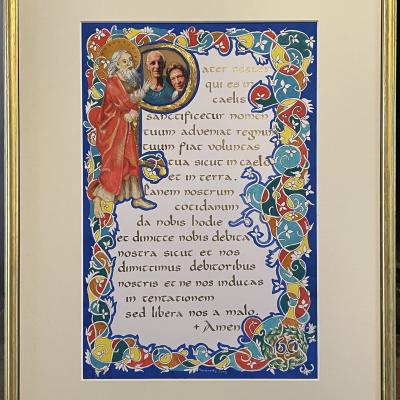 Pater noster
qui es in
caelis
sanctificetur nomen
tuum adveniat regnum
tuum fiat voluntas
tua sicut in caelo
et in terra.
Panem nostrum
cotidianum
da nobis hodie
et dimitte nobis debita
nostra sicut et nos
dimittimus debitoribus
nostris et ne nos inducas
in tentationem
sed libera nos a malo.
+ Amen
60